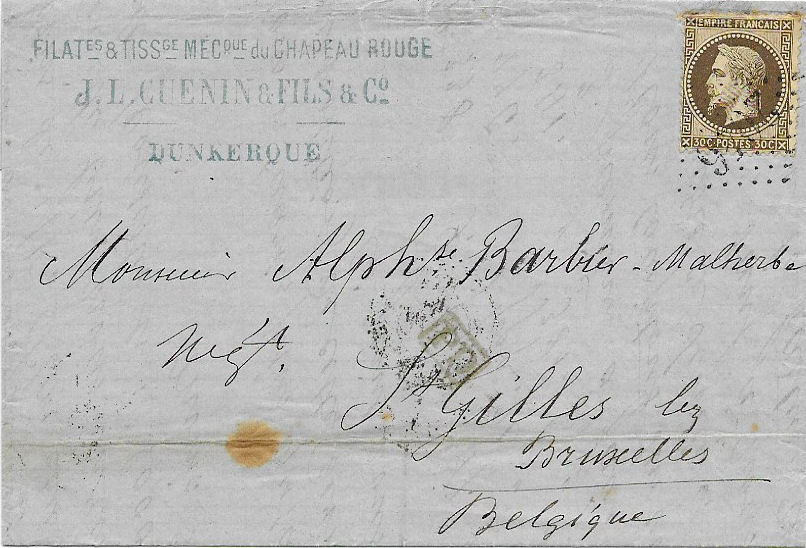 FILATES & TISSGE MÉCQUE du CHAPEAU ROUGE
J. L. GUENIN & FILS & Cº
DUNKERQUE
EMPIRE FRANÇAIS
30C POSTES 30C
Monsieur Alphse Barbier-Malherbe
Négt.
St Gilles lez
Bruxelles
Belgique